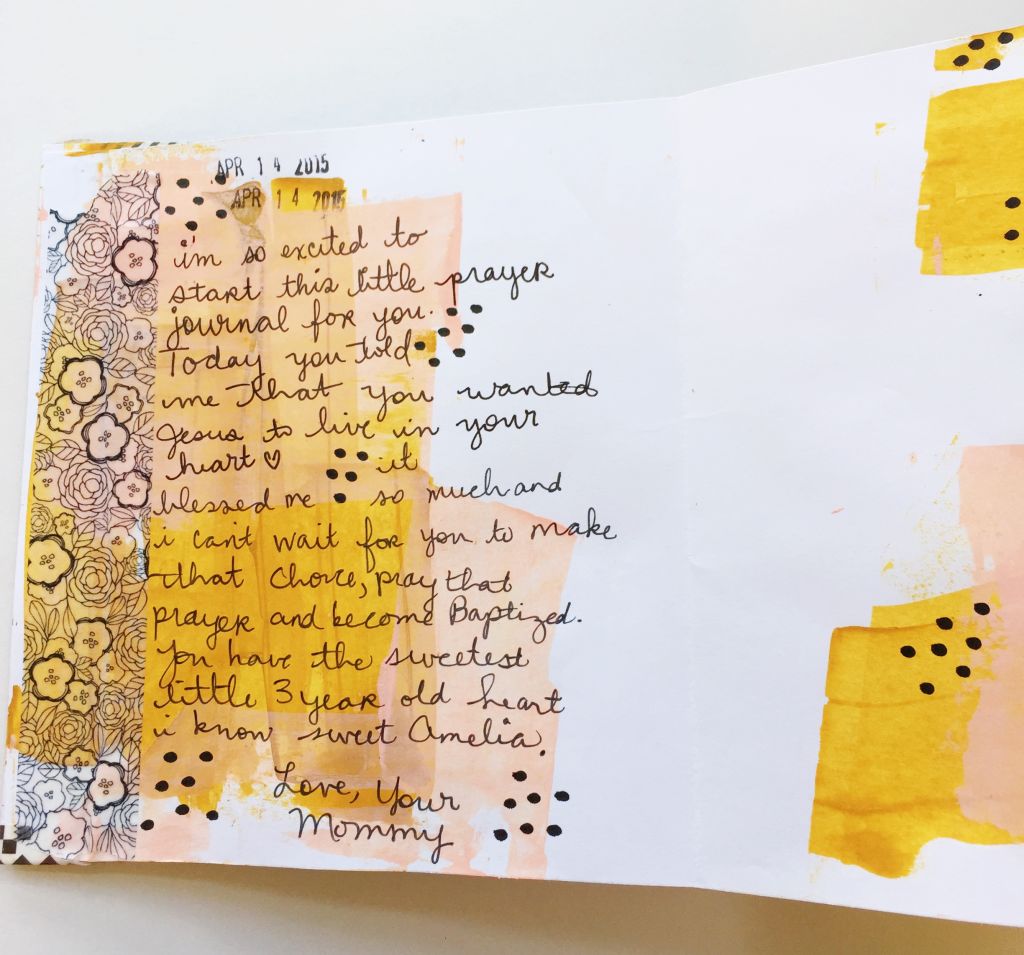 APR 14 2015
APR 14 2015
im so excited to
start this little prayer
journal for you.
Today you told
me that you wanted
Jesus to live in your
heart ♡ it
blessed me so much and
i can't wait for you to make
that choice, pray that
prayer and become Baptized.
You have the sweetest
little 3 year old heart
i know sweet Amelia.
Love, Your
Mommy